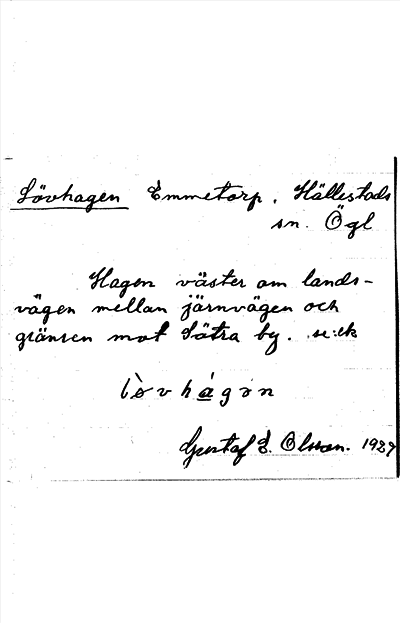 Lövhagen Emmetorp. Hällestads
sn. Ögl
Hagen väster om lands-
vägen mellan järnvägen och
gränsen mot Sätra by. se:ek
lòvhágən
Gustaf E. Olsson. 1927